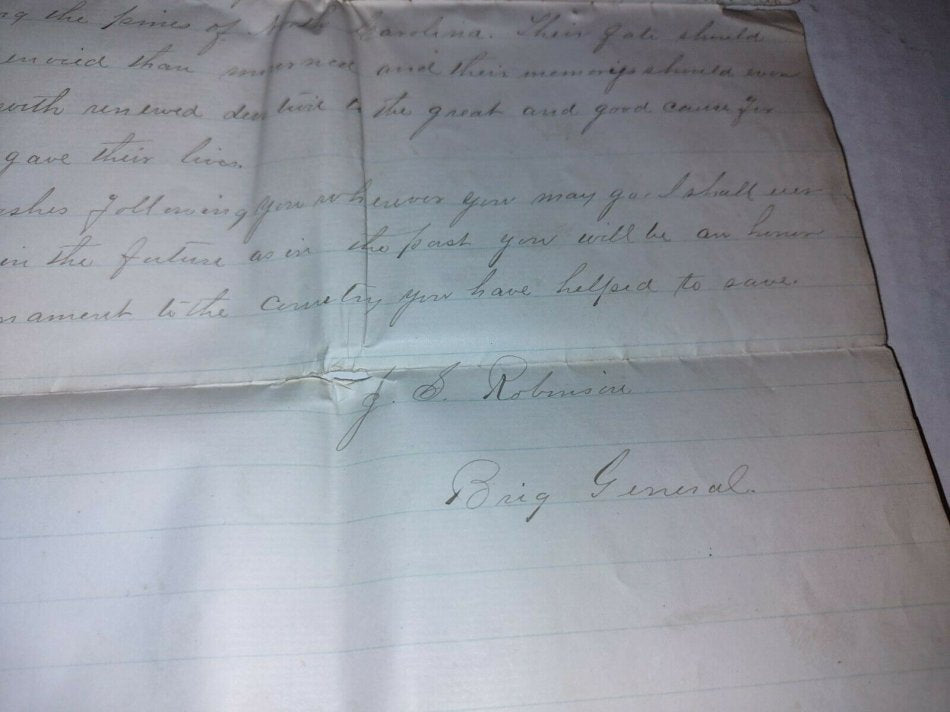 ng the pines of North Carolina. Their fate should
envied than mourned and their memorys should ever
with renewed to the great and good cause for
gave their lives.
ishes following you wherever you may go. I shall ever
in the future as in the past you will be an honor
nament to the country you have helped to save.
J. S. Robinson
Brig General.